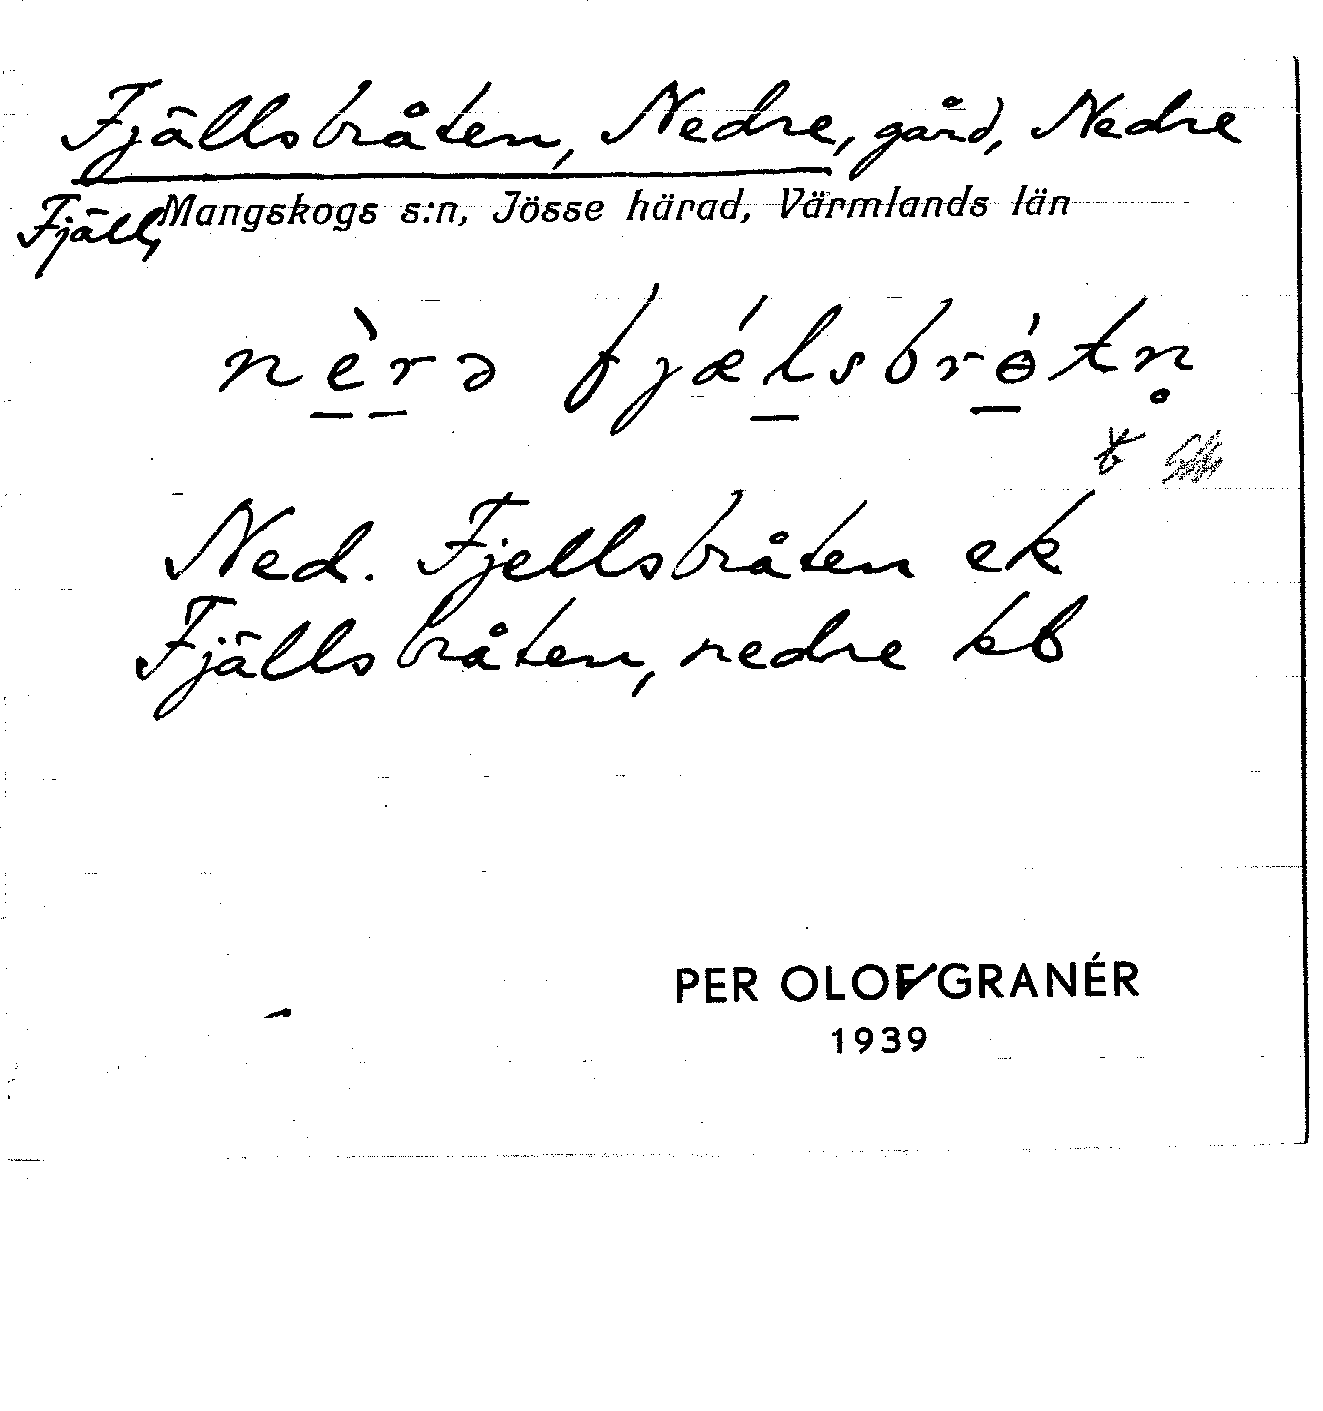 Fjällsbråten, Nedre, gård, Nedre
Fjäll, Mangskogs s:n, Jösse härad, Värmlands län
nèrə fjǽlsbrɵ́tn̥
Ned. Fjellsbråten ek
Fjällsbråten, nedre kb
PER OLOF GRANÉR
1939